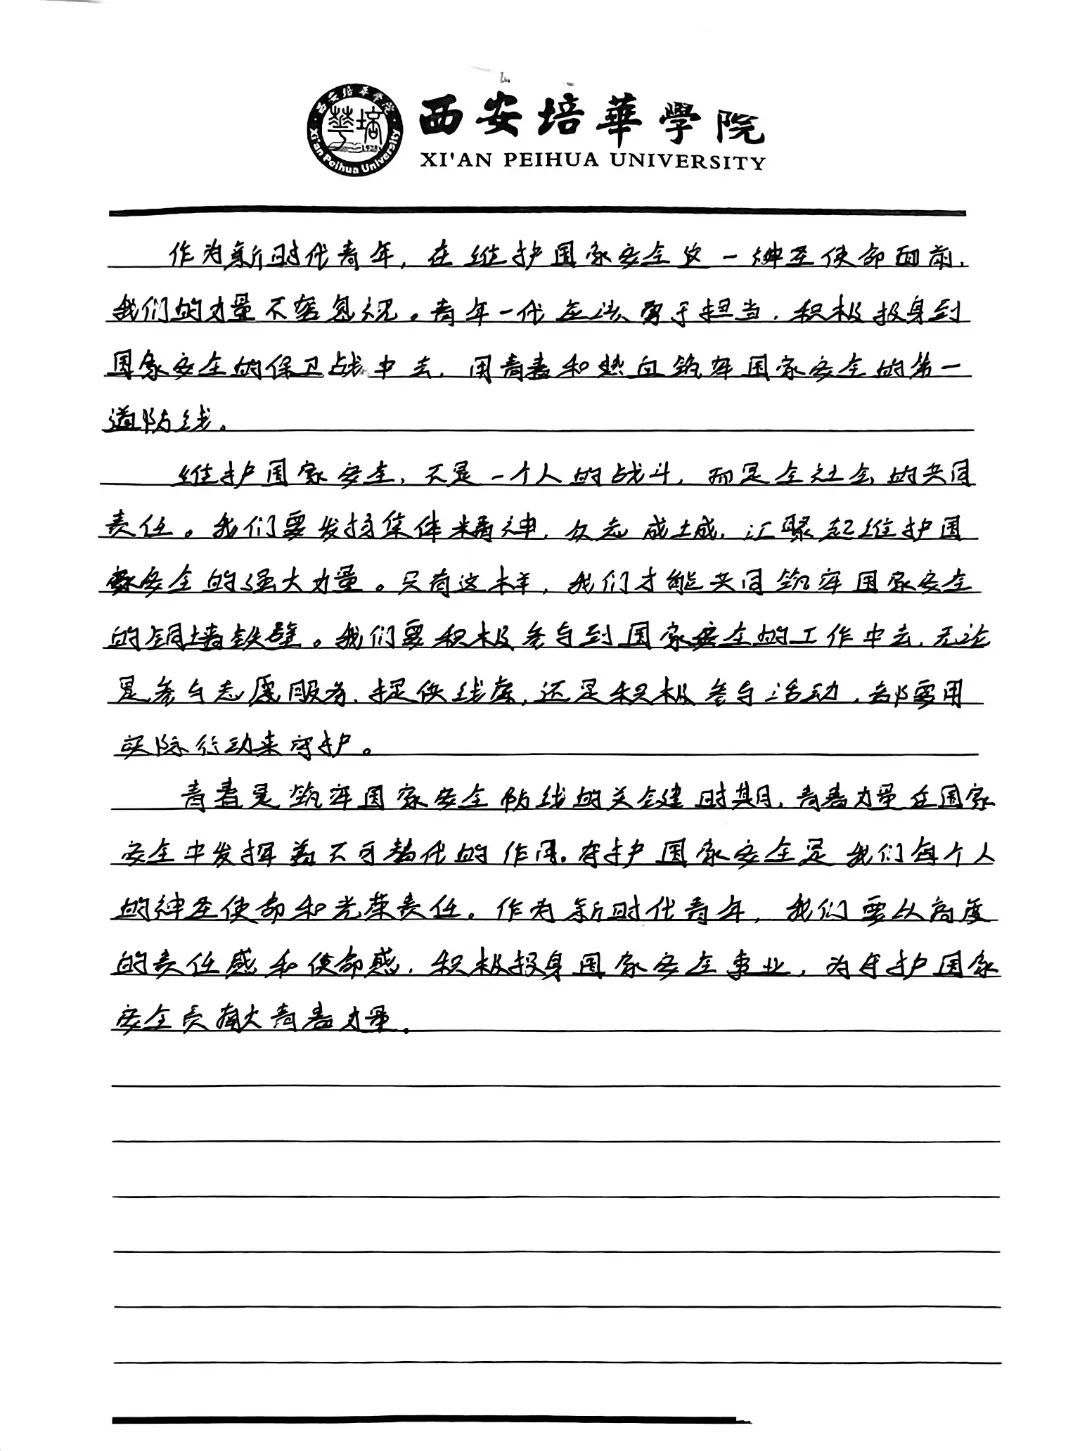 西安培華學院
XI'AN PEIHUA UNIVERSITY
西安培华学院
華培
1928
Xi'an Peihua University
作为新时代青年,在维护国家安全这一神圣使命面前,
我们的力量不容忽视。青年一代应该勇于担当,积极投身到
国家安全的保卫战中去,用青春和热血筑牢国家安全的第一
道防线。
维护国家安全,不是一个人的战斗,而是全社会的共同
责任。我们要发扬集体精神,众志成城,汇聚起维护国
家安全的强大力量。只有这样,我们才能共同筑牢国家安全
的铜墙铁壁。我们要积极参与到国家安全的工作中去,无论
是参与志愿服务,提供线索,还是积极参与活动,都需用
实际行动来守护。
青春是筑牢国家安全防线的关键时期,青春力量在国家
安全中发挥着不可替代的作用。守护国家安全是我们每个人
的神圣使命和光荣责任。作为新时代青年,我们要从高度
的责任感和使命感,积极投身国家安全事业,为守护国家
安全贡献青春力量。